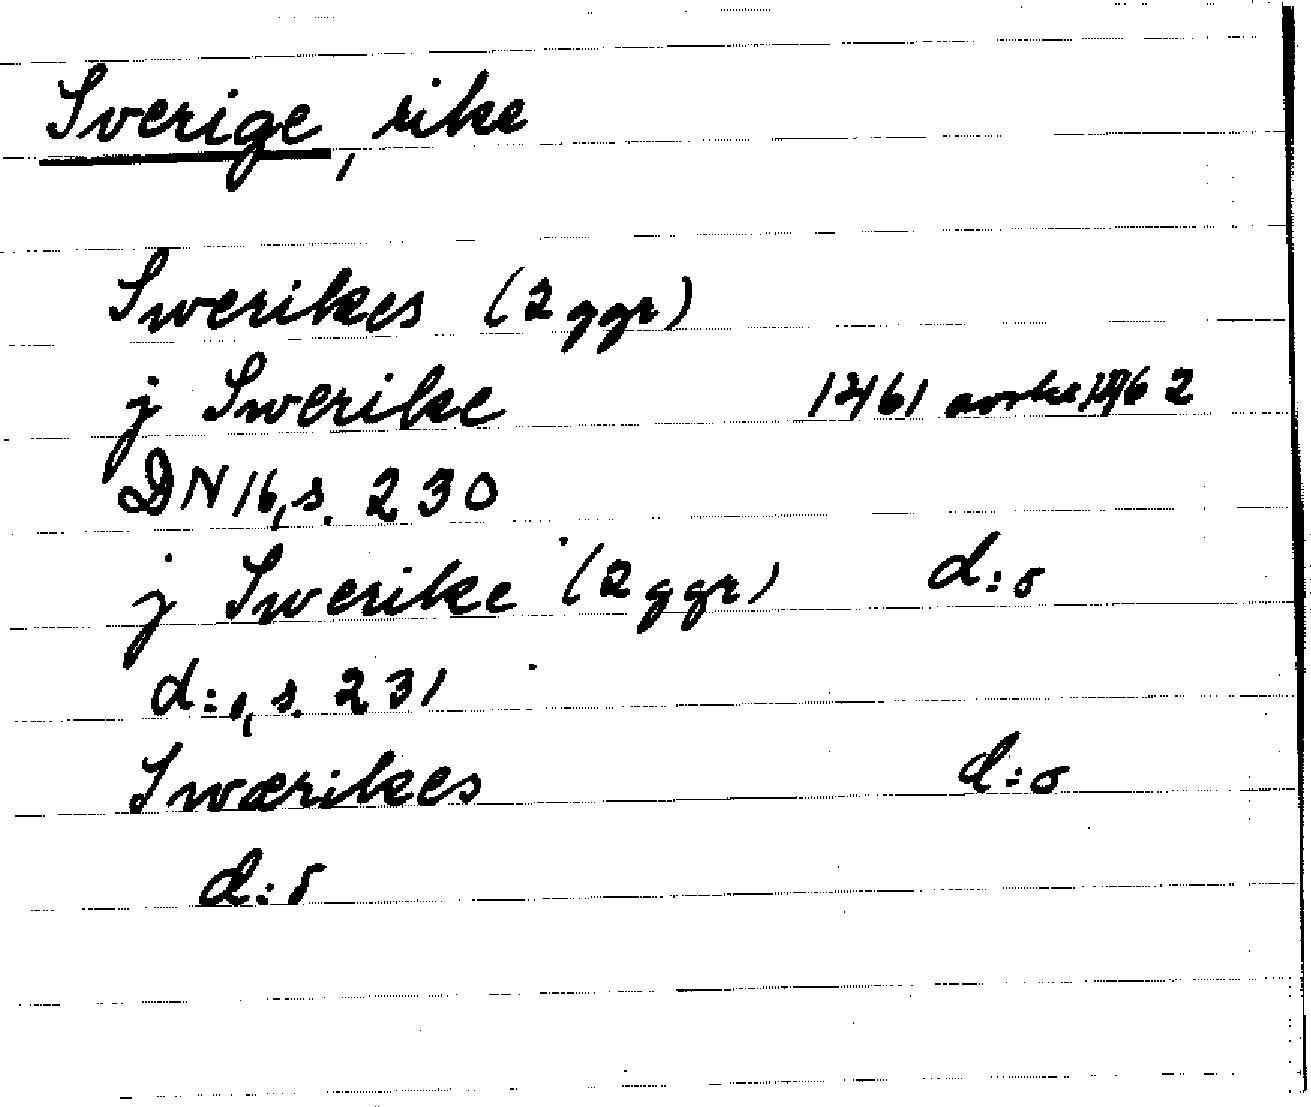 Sverige, rike
Swerikes (2 ggr)
j Swerike 1461 1462
DN 16, s. 230
j Swerike (2 ggr) d:o
d:o, s. 231
Swærikes d:o
d:o